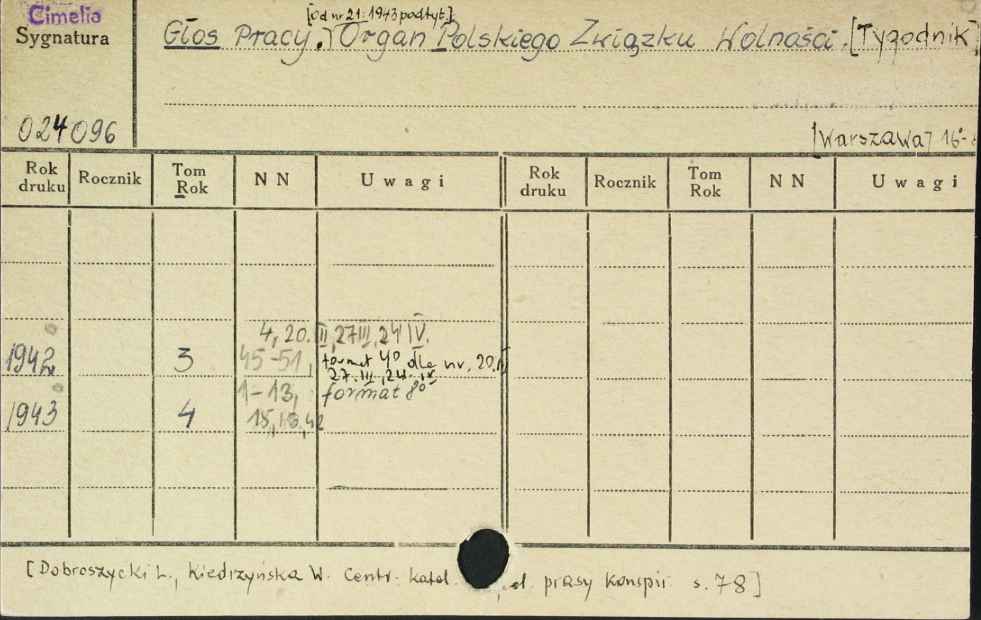 Cimelia
Sygnatura
024096
[od nr 21: 1943 podtyt.]
Głos Pracy. Organ Polskiego Związku Wolności. [Tygodnik]
[Warszawa] 16°-
Rok druku Rocznik Tom Rok NN Uwagi Rok druku Rocznik Tom Rok NN Uwagi
4, 20.II, 27 III, 24 IV.
1942 3 45-51, format 4° dla nr. 20.II
27.III, 24. IV
1-13, format 8°
1943 4 15, 42
[Dobroszycki L., Kiedrzyńska W. Centr. katal. prasy konspir. s. 78]